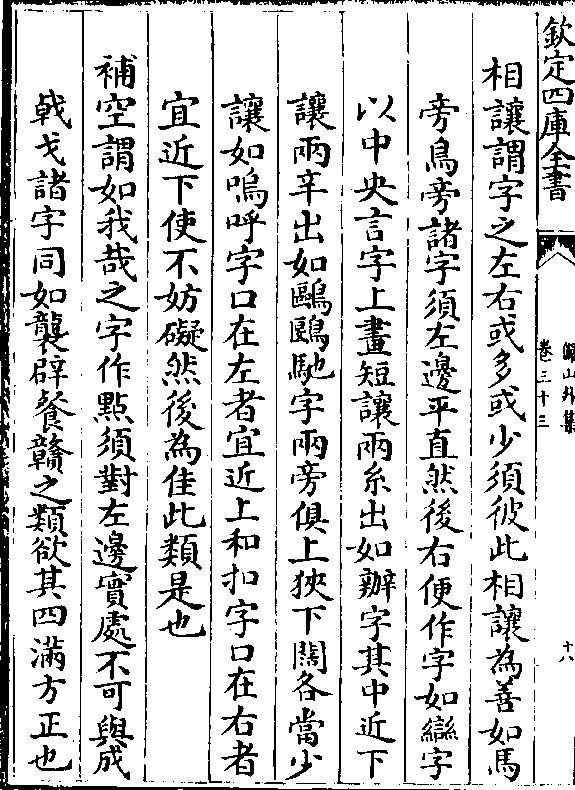 欽定四庫全書
圭山外集
卷三十三
十八
相讓謂字之左右或多或少須彼此相讓為善如馬
旁鳥旁諸字須左邊平直然後右便作字如䜌字
以中央言字上畫短讓兩糸出如辦字其中近下
讓兩辛出如鷗䳼馳字兩旁俱上狹下闊各當少
讓如嗚呼字口在左者宜近上和扣字口在右者
宜近下使不妨礙然後為佳此類是也
補空謂如我哉之字作點須對左邊實處不可與成
戟戈諸字同如襲辟餐贛之類欲其四滿方正也